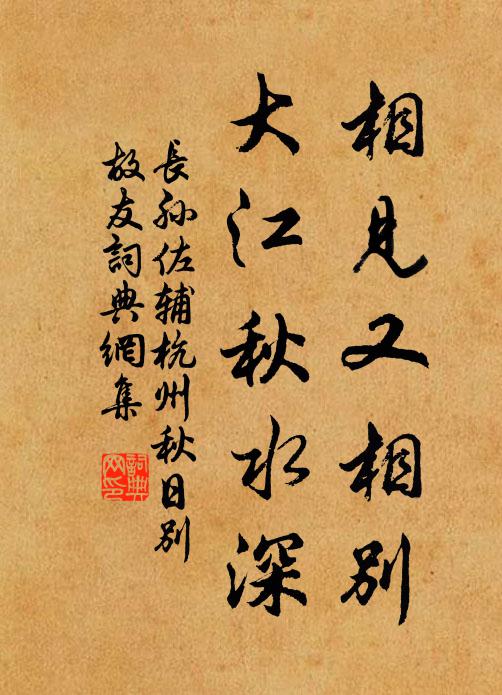 相見又相別
大江秋水深
長孙佐輔杭州秋日別
故友詞典網集
詞典
网印